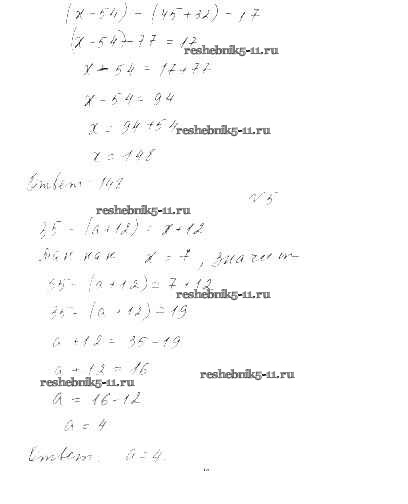 (x-54) - (45+32) = 17
(x-54)-77 = 17
reshebnik5-11.ru
x - 54 = 17+77
x - 54 = 94
x = 94+54
reshebnik5-11.ru
x = 148
Ответ: 148
reshebnik5-11.ru
√5
35 - (a+12) = x+12
Так как x = 7, значит
35 - (a+12) = 7+12
reshebnik5-11.ru
35 - (a+12) = 19
a+12 = 35-19
a + 12 = 16
reshebnik5-11.ru
reshebnik5-11.ru
a = 16-12
a = 4
Ответ: a=4.